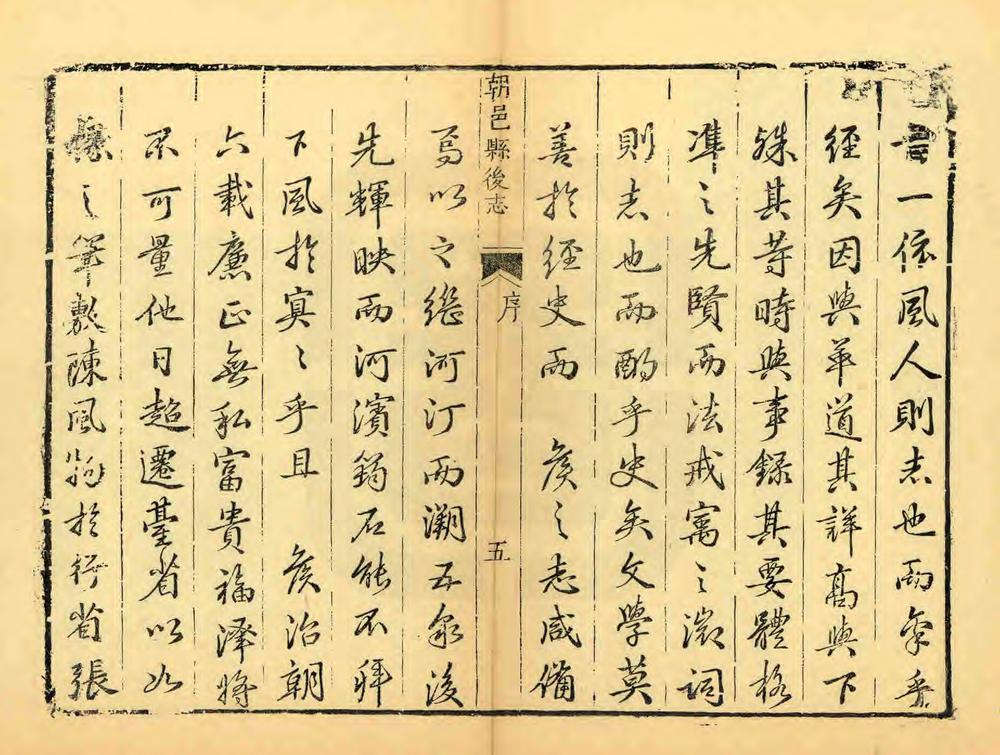 言一依風人則志也而乎
經矣因與革道其詳高與下
殊其等時與事錄其要體格
準之先賢而法戒寓之微詞
則志也而酌乎史矣文學莫
善於經史而 侯之志咸備
朝邑縣後志 序 五
焉以之繼河汀而溯五泉後
先輝映而河濱鎸石能不拜
下風於冥〻乎且 侯治朝
六載廉正無私富貴福澤將
不可量他日超遷臺省以如
椽之筆敷陳風物於行省張